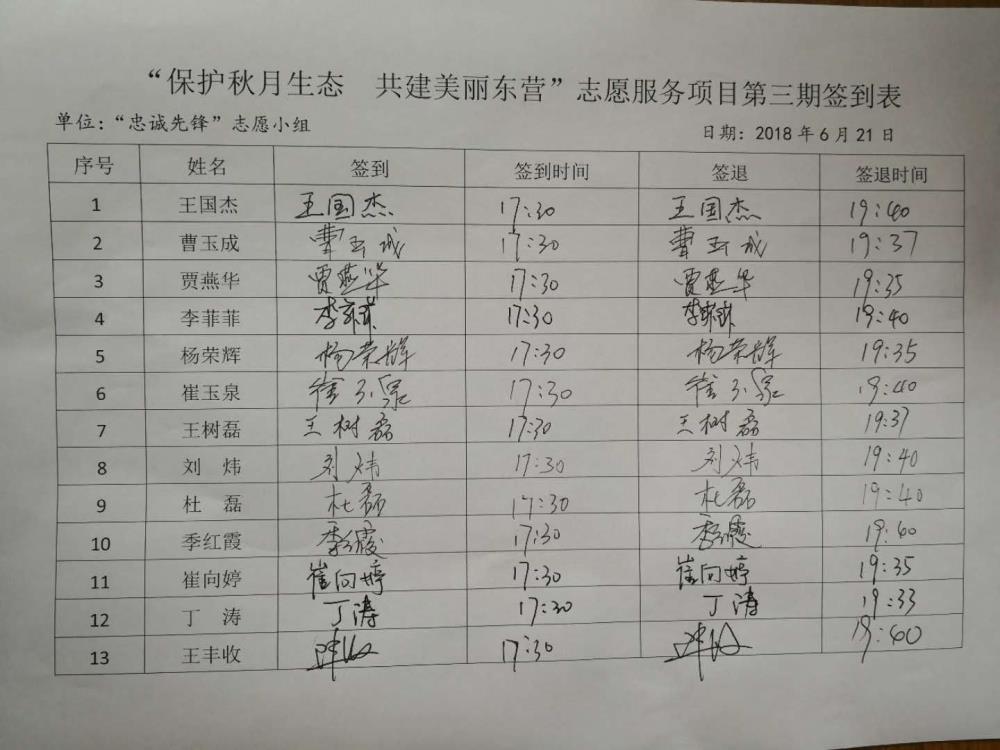 “保护秋月生态 共建美丽东营”志愿服务项目第三期签到表
单位：“忠诚先锋”志愿小组 日期：2018 年 6 月 21 日
序号 姓名 签到 签到时间 签退 签退时间
1 王国杰 王国杰 17:30 王国杰 19:40
2 曹玉成 曹玉成 17:30 曹玉成 19:37
3 贾燕华 贾燕华 17:30 贾燕华 19:35
4 李菲菲 李菲菲 17:30 李菲菲 19:40
5 杨荣辉 杨荣辉 17:30 杨荣辉 19:35
6 崔玉泉 崔玉泉 17:30 崔玉泉 19:40
7 王树磊 王树磊 17:30 王树磊 19:37
8 刘 炜 刘炜 17:30 刘炜 19:40
9 杜 磊 杜磊 17:30 杜磊 19:40
10 季红霞 季红霞 17:30 季红霞 19:40
11 崔向婷 崔向婷 17:30 崔向婷 19:35
12 丁 涛 丁涛 17:30 丁涛 19:33
13 王丰收 17:30 19:40